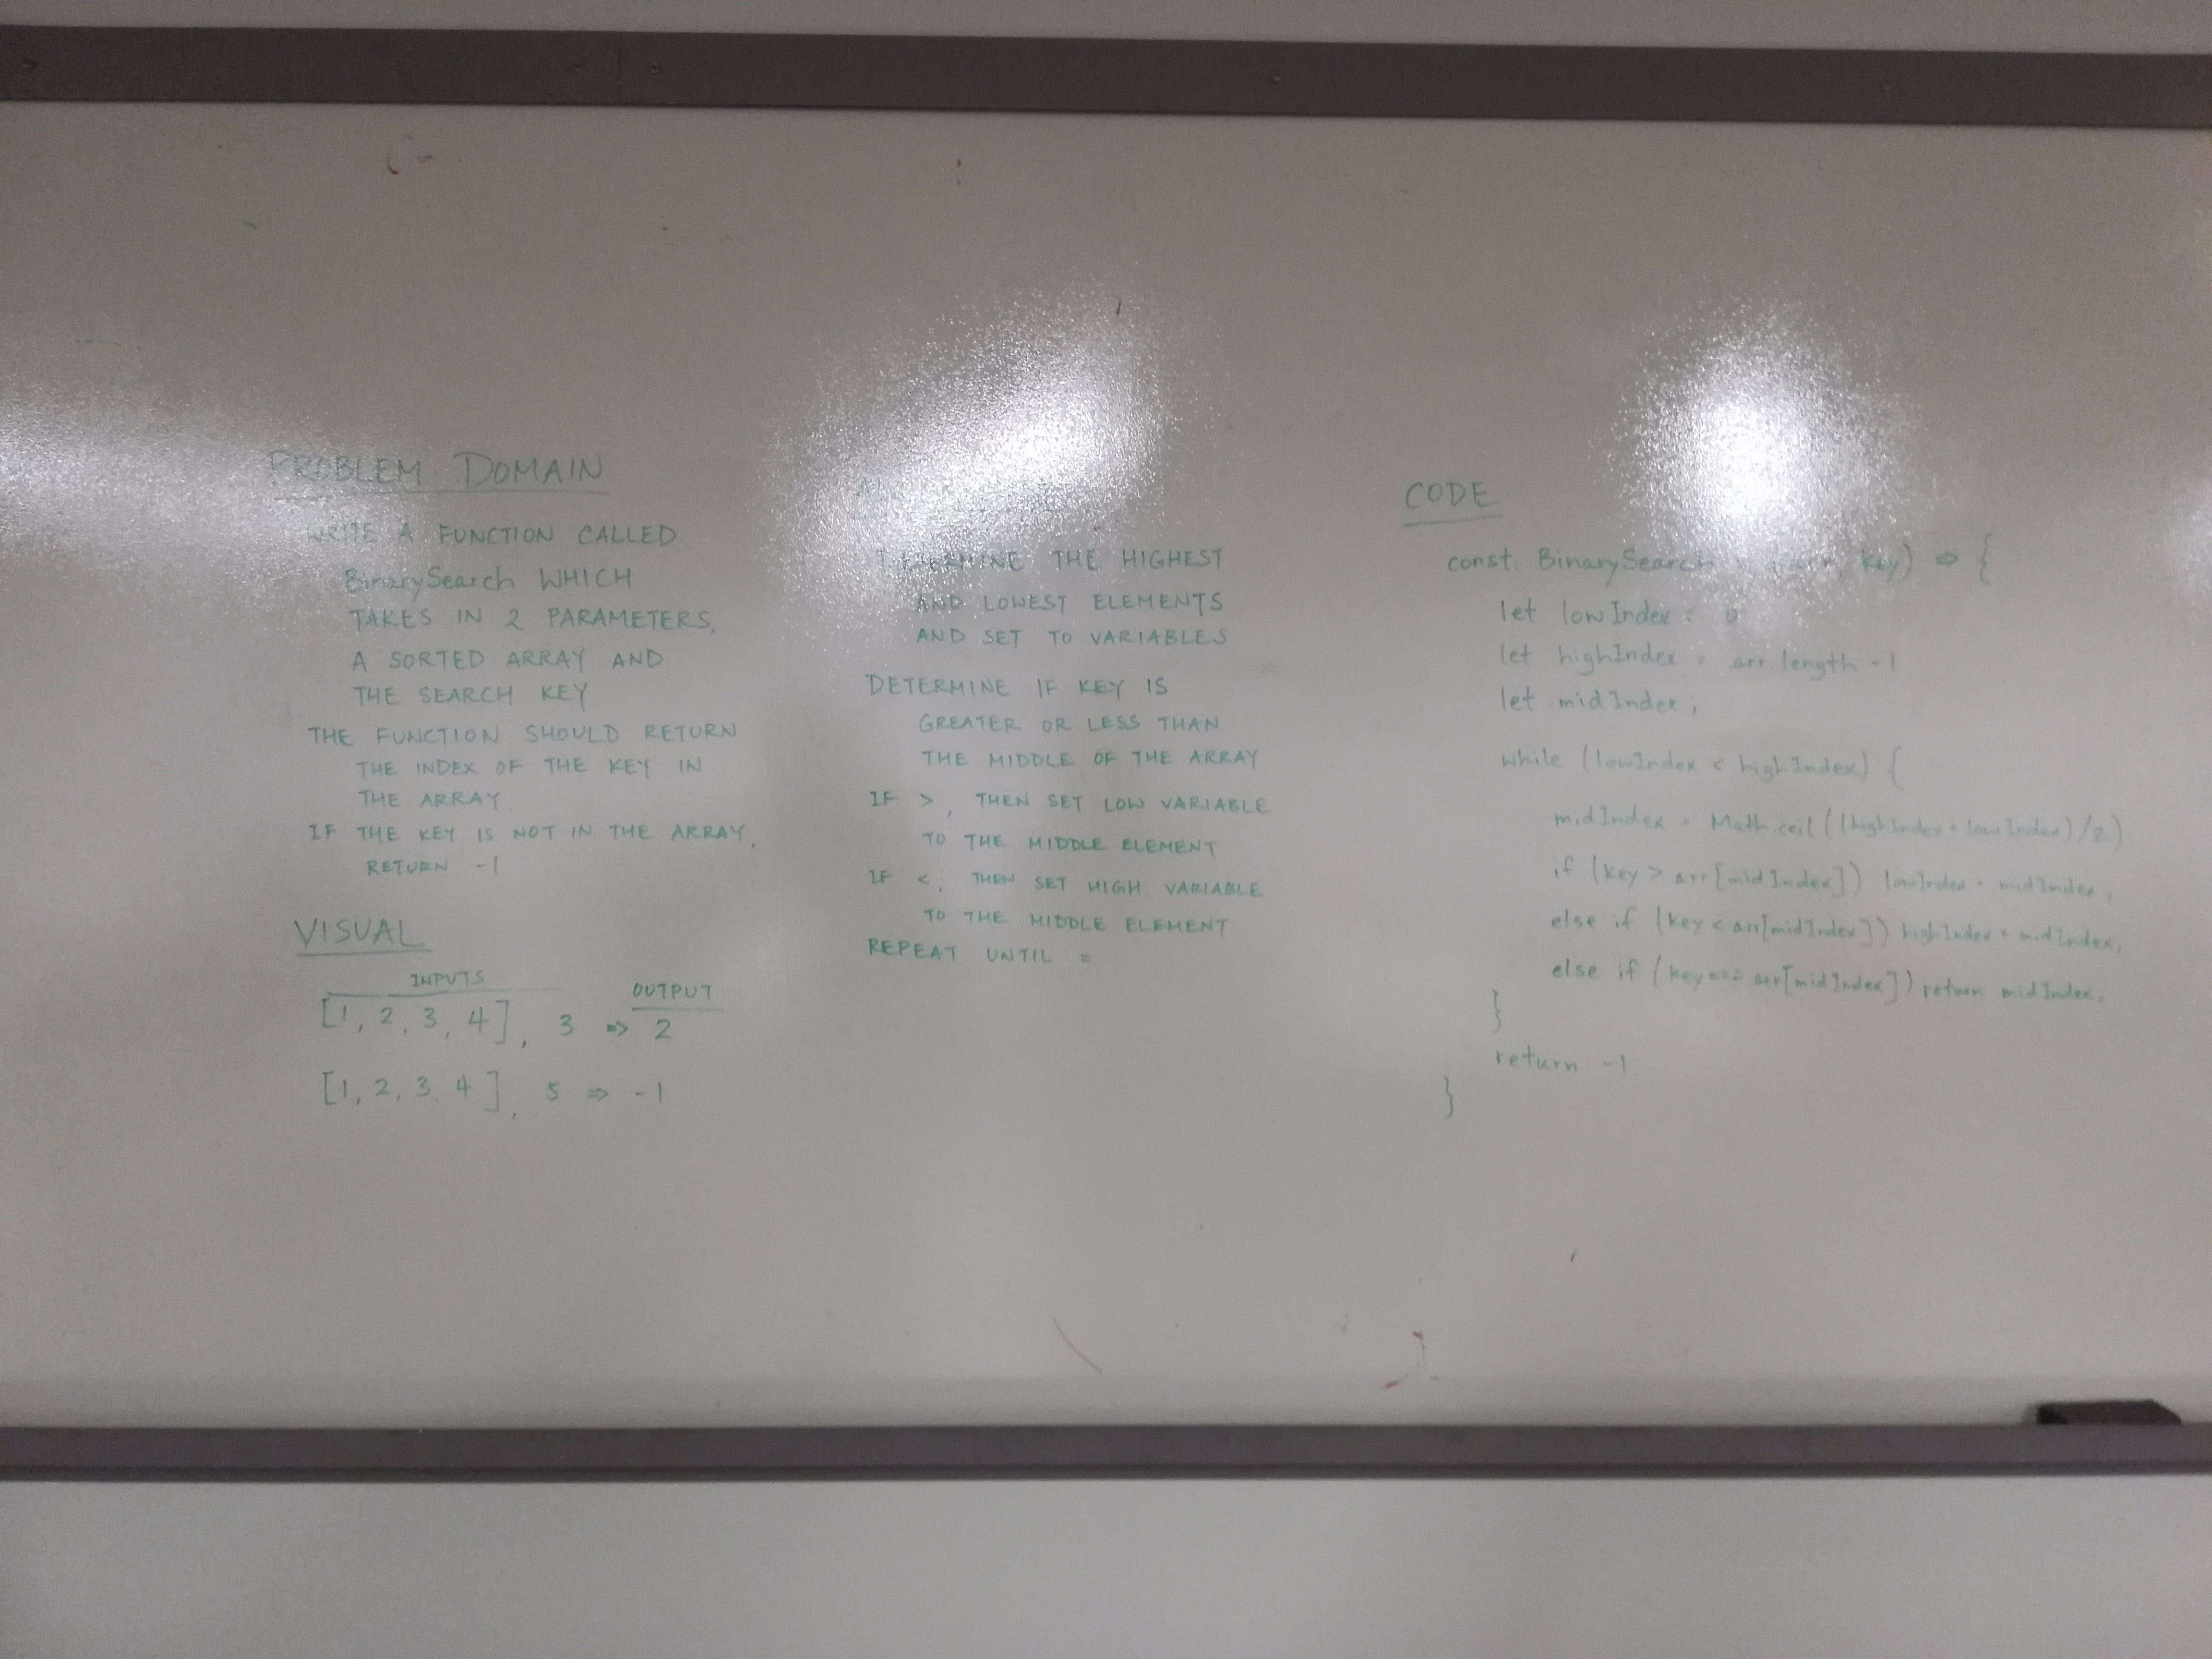 PROBLEM DOMAIN
WRITE A FUNCTION CALLED
BinarySearch WHICH
TAKES IN 2 PARAMETERS,
A SORTED ARRAY AND
THE SEARCH KEY
THE FUNCTION SHOULD RETURN
THE INDEX OF THE KEY IN
THE ARRAY
IF THE KEY IS NOT IN THE ARRAY,
RETURN -1
VISUAL
INPUTS
OUTPUT
[1, 2, 3, 4], 3 => 2
[1, 2, 3, 4], 5 => -1
DETERMINE THE HIGHEST
AND LOWEST ELEMENTS
AND SET TO VARIABLES
DETERMINE IF KEY IS
GREATER OR LESS THAN
THE MIDDLE OF THE ARRAY
IF >, THEN SET LOW VARIABLE
TO THE MIDDLE ELEMENT
IF <, THEN SET HIGH VARIABLE
TO THE MIDDLE ELEMENT
REPEAT UNTIL =
CODE
const BinarySearch = (arr, key) => {
let lowIndex = 0
let highIndex = arr.length -1
let midIndex;
while (lowIndex < highIndex) {
midIndex = Math.ceil((highIndex + lowIndex)/2)
if (key > arr[midIndex]) lowIndex = midIndex;
else if (key < arr[midIndex]) highIndex = midIndex;
else if (key === arr[midIndex]) return midIndex;
}
return -1
}